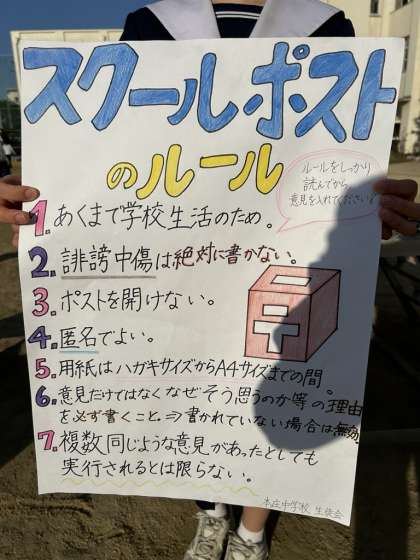 スクールポスト
のルール
ルールをしっかり
読んでから
意見を入れてください!
1. あくまで学校生活のため。
2. 誹謗中傷は絶対に書かない。
3. ポストを開けない。
4. 匿名でよい。
5. 用紙はハガキサイズからA4サイズまでの間。
6. 意見だけではなくなぜそう思うのか等の理由
を必ず書くこと。⇒書かれていない場合は無効
7. 複数同じような意見があったとしても
実行されるとは限らない。
本庄中学校 生徒会